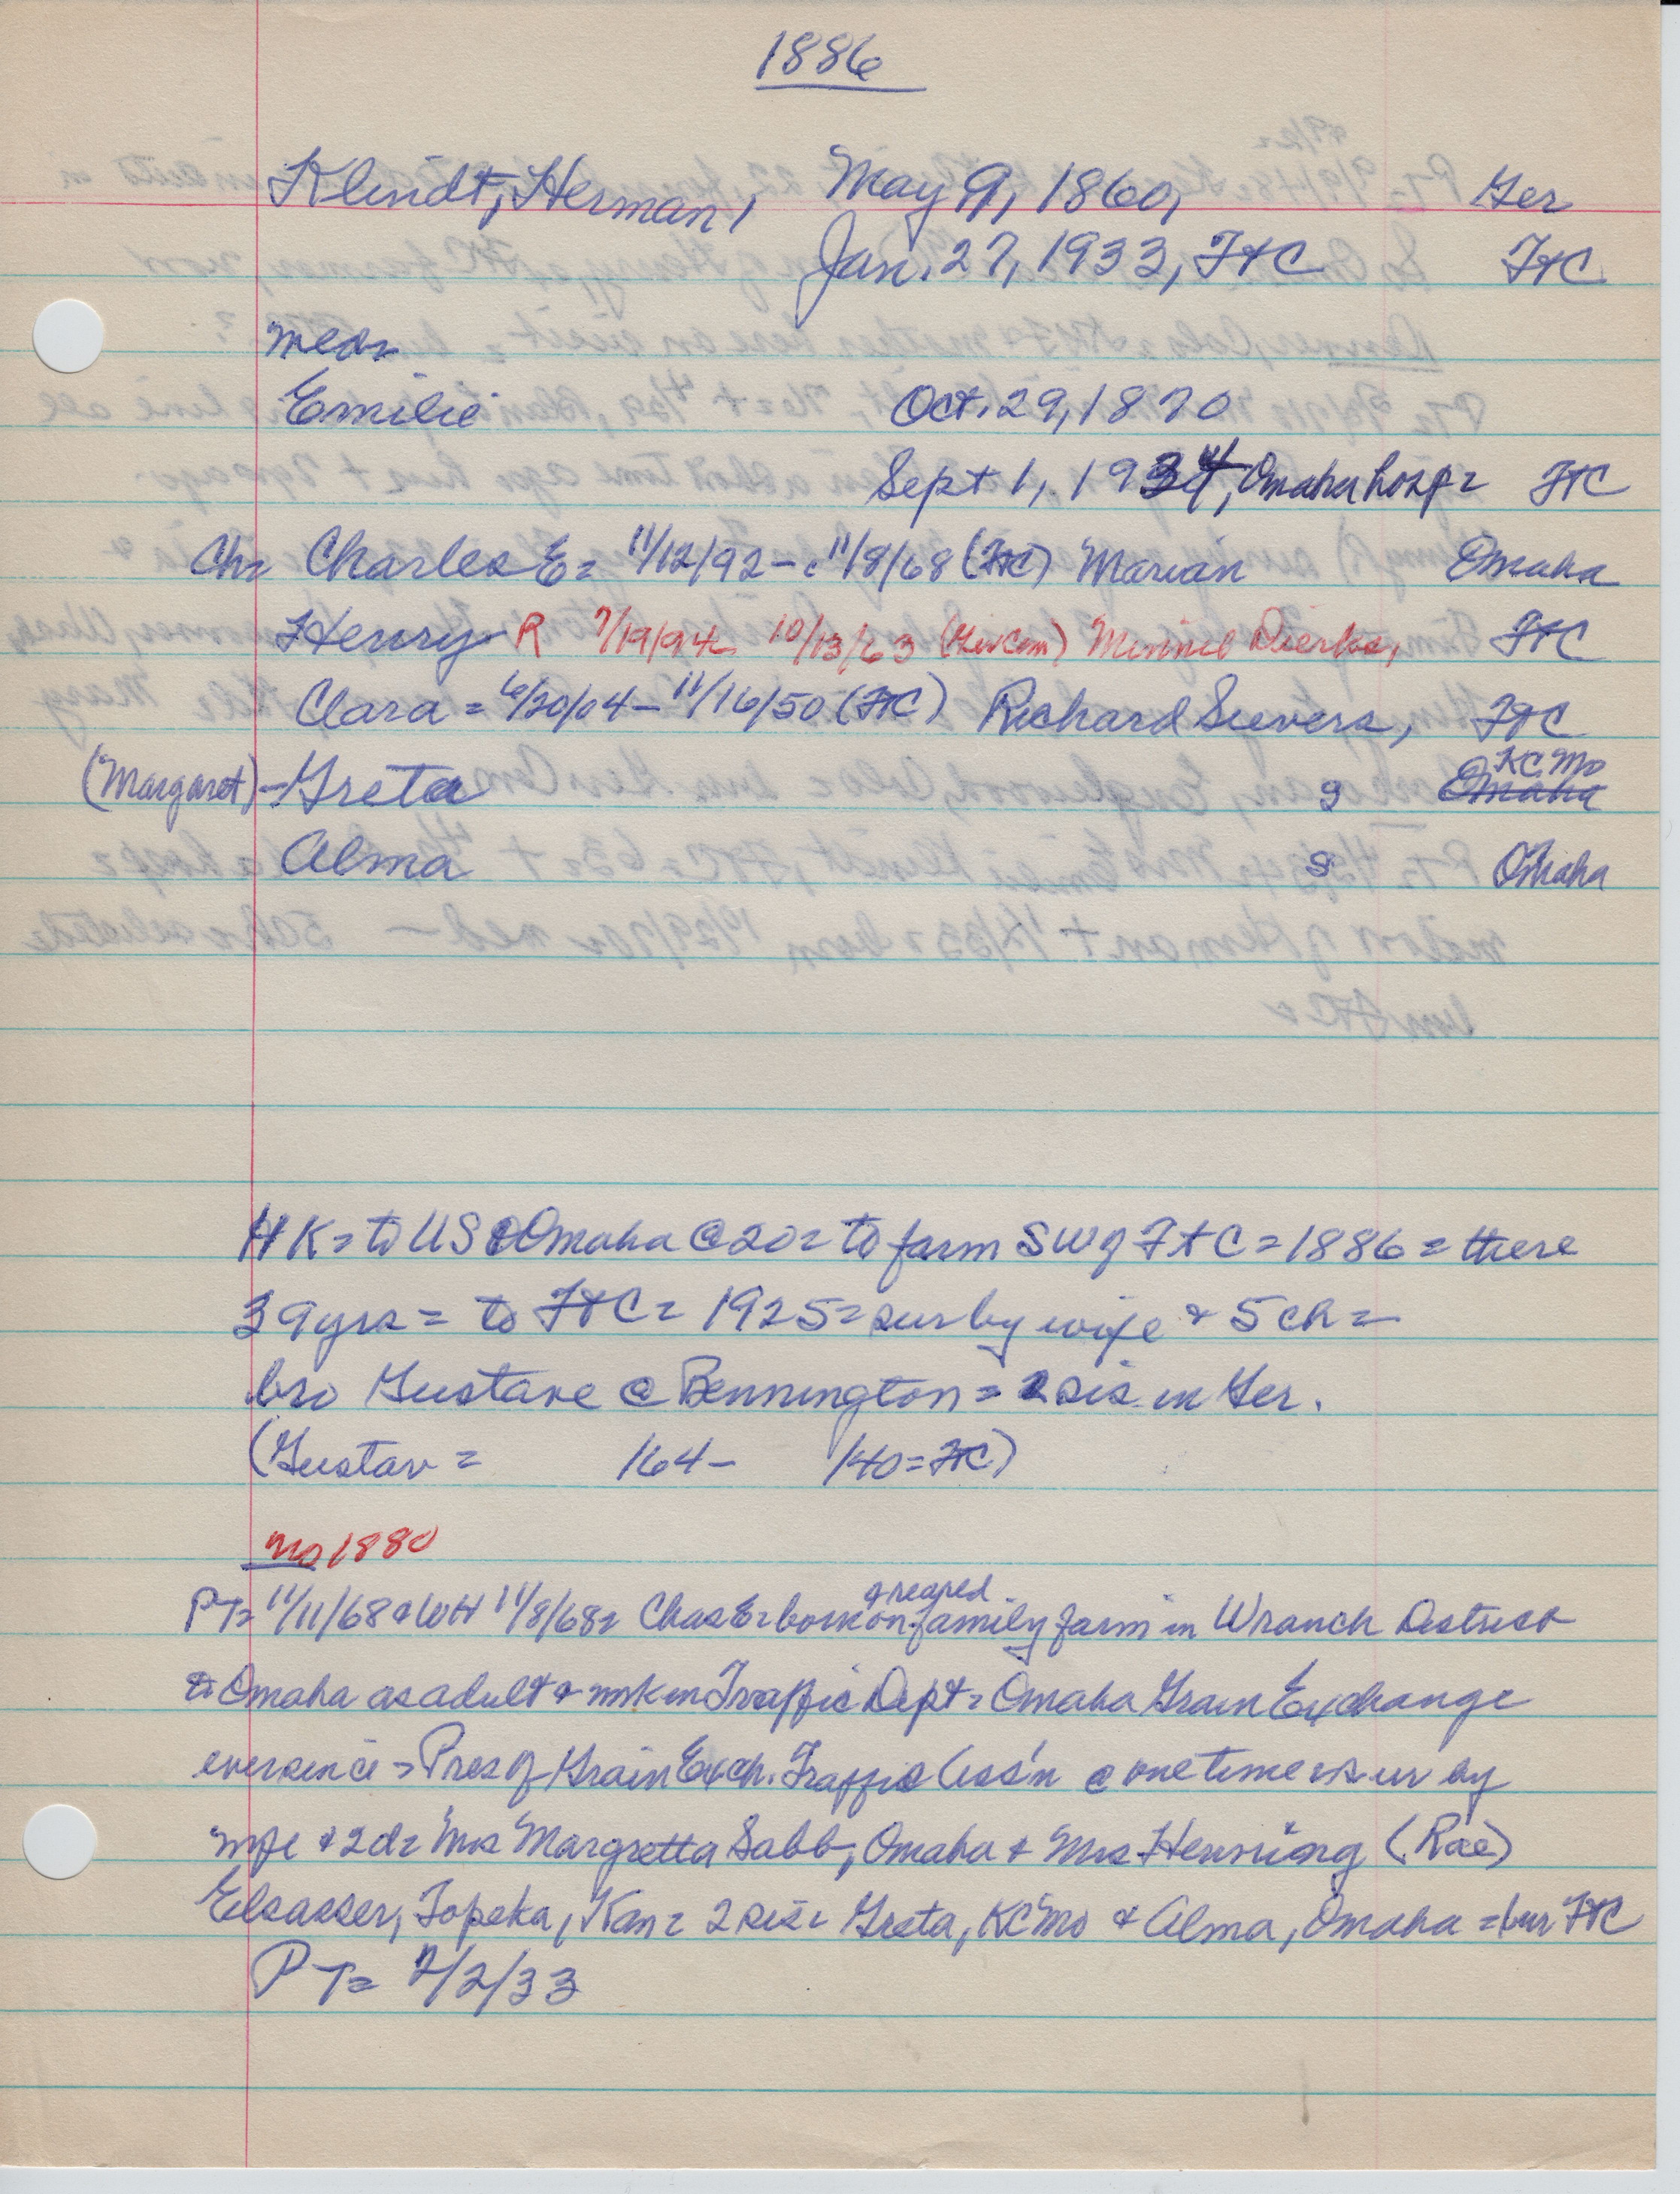 1886
Klindt, Herman, May 9, 1860, Ger
Jan. 27, 1933, FtC FtC
med=
Emilie Oct. 29, 1870
Sept 1, 1934, Omaha hosp= FtC
Ch= Charles E= 11/12/92 - 11/8/68 (FtC) Marian Omaha
Henry R 7/19/94 10/13/63 (Kin Cem) Minnie Dierks, FtC
Clara = 6/20/04 - 11/16/50 (FtC) Richard Sievers, FtC
KC Mo
(Margaret) - Greta S Omaha
Alma S Omaha
HK= to US @ Omaha @ 20= to farm SW of FtC = 1886 = there
39 yrs = to FtC = 1925 = sur by wife & 5 ch =
bro Gustave @ Bennington = 2 sis in Ger.
(Gustav = 164 - 140 = FtC)
no 1880
& reared
PT= 11/11/68 & WH 11/8/68= Chas E= born on family farm in W ranch District
to Omaha as adult & wrk in Traffic Dept= Omaha Grain Exchange
ever since = Pres of Grain Exch. Traffic Ass'n @ one time = sur by
wife & 2 d= Mrs Margretta Sabb, Omaha & Mrs Henning (Rae)
Elsasser, Topeka, Kan= 2 sis= Greta, KC Mo & Alma, Omaha = bur FtC
PT= 2/2/33